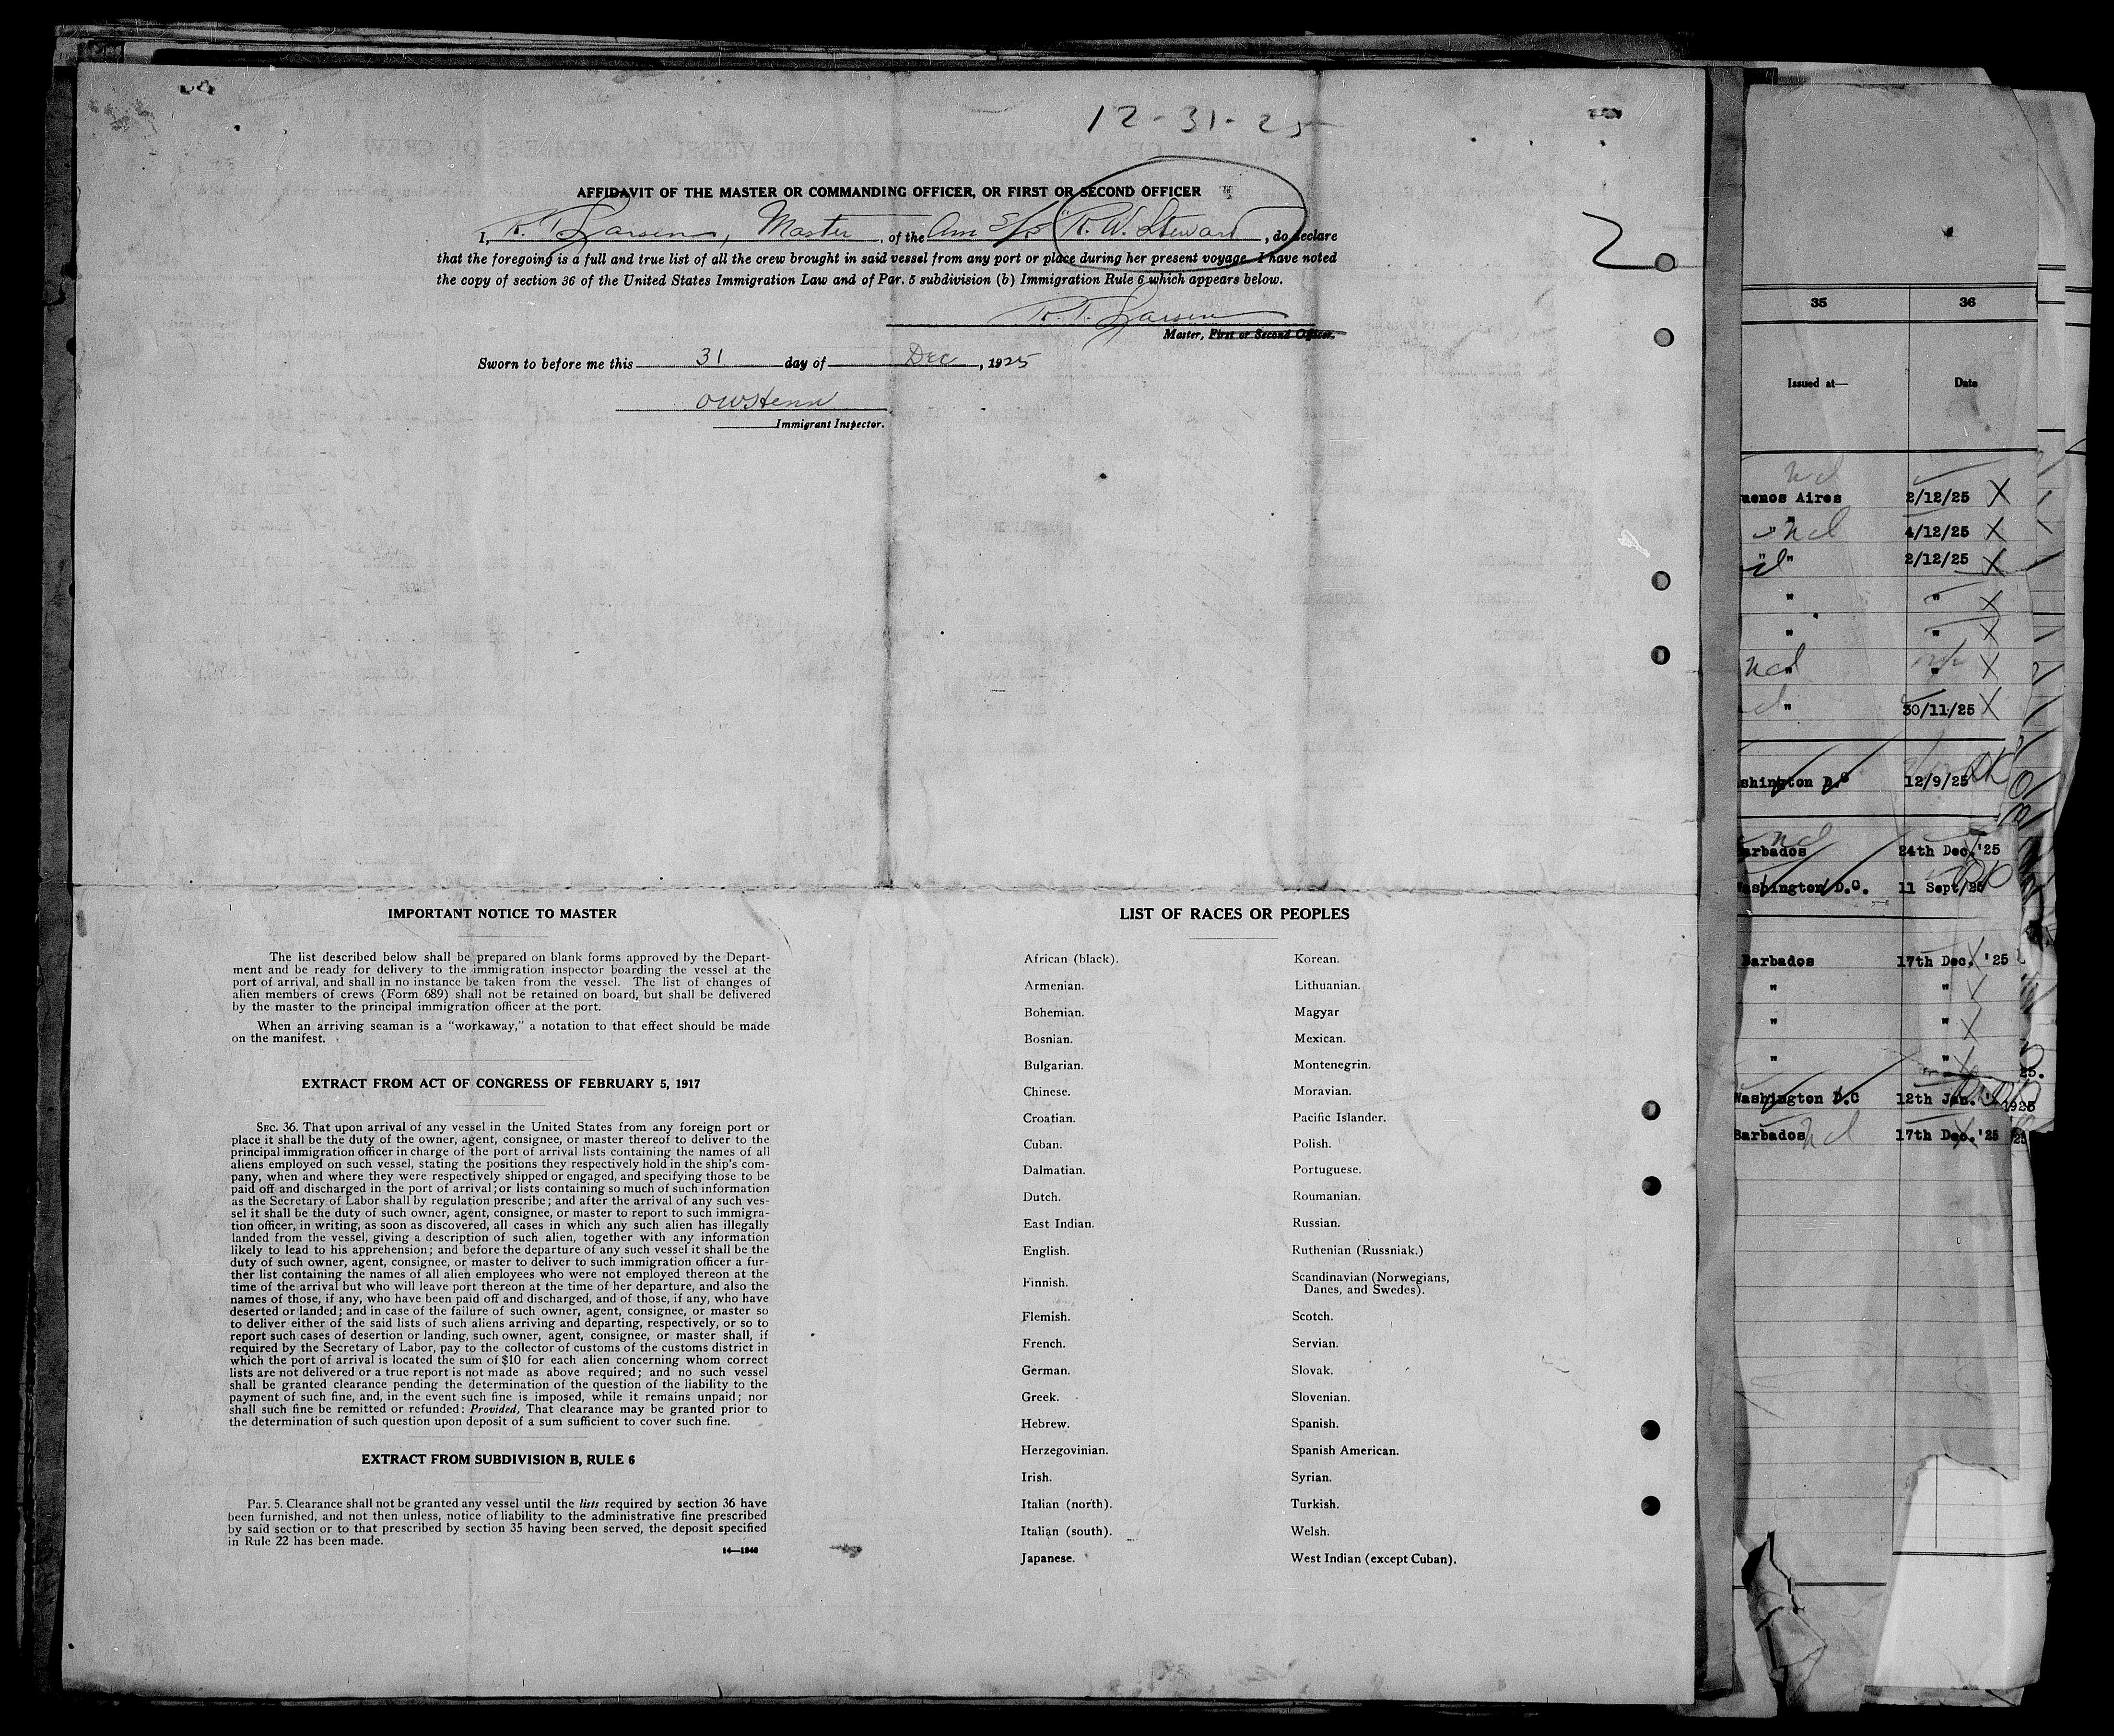 12-31-25
AFFIDAVIT OF THE MASTER OR COMMANDING OFFICER, OR FIRST OR SECOND OFFICER
I, R. T. Larsen, Master, of the Am S/S R. W. Stewart, do declare
that the foregoing is a full and true list of all the crew brought in said vessel from any port or place during her present voyage. I have noted
the copy of section 36 of the United States Immigration Law and of Par. 5 subdivision (b) Immigration Rule 6 which appears below.
R. T. Larsen
Master, First or Second Officer.
Sworn to before me this 31 day of Dec, 1925
OWHenn
Immigrant Inspector.
2
IMPORTANT NOTICE TO MASTER
The list described below shall be prepared on blank forms approved by the Depart-
ment and be ready for delivery to the immigration inspector boarding the vessel at the
port of arrival, and shall in no instance be taken from the vessel. The list of changes of
alien members of crews (Form 689) shall not be retained on board, but shall be delivered
by the master to the principal immigration officer at the port.
When an arriving seaman is a "workaway," a notation to that effect should be made
on the manifest.
EXTRACT FROM ACT OF CONGRESS OF FEBRUARY 5, 1917
SEC. 36. That upon arrival of any vessel in the United States from any foreign port or
place it shall be the duty of the owner, agent, consignee, or master thereof to deliver to the
principal immigration officer in charge of the port of arrival lists containing the names of all
aliens employed on such vessel, stating the positions they respectively hold in the ship's com-
pany, when and where they were respectively shipped or engaged, and specifying those to be
paid off and discharged in the port of arrival; or lists containing so much of such information
as the Secretary of Labor shall by regulation prescribe; and after the arrival of any such ves-
sel it shall be the duty of such owner, agent, consignee, or master to report to such immigra-
tion officer, in writing, as soon as discovered, all cases in which any such alien has illegally
landed from the vessel, giving a description of such alien, together with any information
likely to lead to his apprehension; and before the departure of any such vessel it shall be the
duty of such owner, agent, consignee, or master to deliver to such immigration officer a fur-
ther list containing the names of all alien employees who were not employed thereon at the
time of the arrival but who will leave port thereon at the time of her departure, and also the
names of those, if any, who have been paid off and discharged, and of those, if any, who have
deserted or landed; and in case of the failure of such owner, agent, consignee, or master so
to deliver either of the said lists of such aliens arriving and departing, respectively, or so to
report such cases of desertion or landing, such owner, agent, consignee, or master shall, if
required by the Secretary of Labor, pay to the collector of customs of the customs district in
which the port of arrival is located the sum of $10 for each alien concerning whom correct
lists are not delivered or a true report is not made as above required; and no such vessel
shall be granted clearance pending the determination of the question of the liability to the
payment of such fine, and, in the event such fine is imposed, while it remains unpaid; nor
shall such fine be remitted or refunded: Provided, That clearance may be granted prior to
the determination of such question upon deposit of a sum sufficient to cover such fine.
EXTRACT FROM SUBDIVISION B, RULE 6
Par. 5. Clearance shall not be granted any vessel until the lists required by section 36 have
been furnished, and not then unless, notice of liability to the administrative fine prescribed
by said section or to that prescribed by section 35 having been served, the deposit specified
in Rule 22 has been made.
14—1240
LIST OF RACES OR PEOPLES
African (black).
Armenian.
Bohemian.
Bosnian.
Bulgarian.
Chinese.
Croatian.
Cuban.
Dalmatian.
Dutch.
East Indian.
English.
Finnish.
Flemish.
French.
German.
Greek.
Hebrew.
Herzegovinian.
Irish.
Italian (north).
Italian (south).
Japanese.
Korean.
Lithuanian.
Magyar
Mexican.
Montenegrin.
Moravian.
Pacific Islander.
Polish.
Portuguese.
Roumanian.
Russian.
Ruthenian (Russniak.)
Scandinavian (Norwegians,
Danes, and Swedes).
Scotch.
Servian.
Slovak.
Slovenian.
Spanish.
Spanish American.
Syrian.
Turkish.
Welsh.
West Indian (except Cuban).
35 36
Issued at— Date
ncl
uenos Aires 2/12/25 X
" ncl 4/12/25 X
" 2/12/25 X
" " X
" " X
ncl " " X
" 30/11/25 X
shington D.C 12/9/25 OK
ncl
arbados 24th Dec.'25
Washington D.C. 11 Sept/25
Barbados 17th Dec. '25
" " X
" " X
" " X
25.
Washington D.C 12th Jan. 1925
Barbados ncl 17th Dec.'25